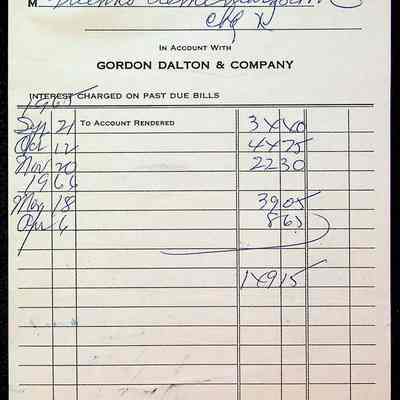 M
IN ACCOUNT WITH
GORDON DALTON & COMPANY
INTEREST CHARGED ON PAST DUE BILLS
1965
Sep 21 TO ACCOUNT RENDERED 34 40
Oct 12 44 75
Nov 20 22 30
1966
Mar 18 39 05
Apr 6 8 65
149 15